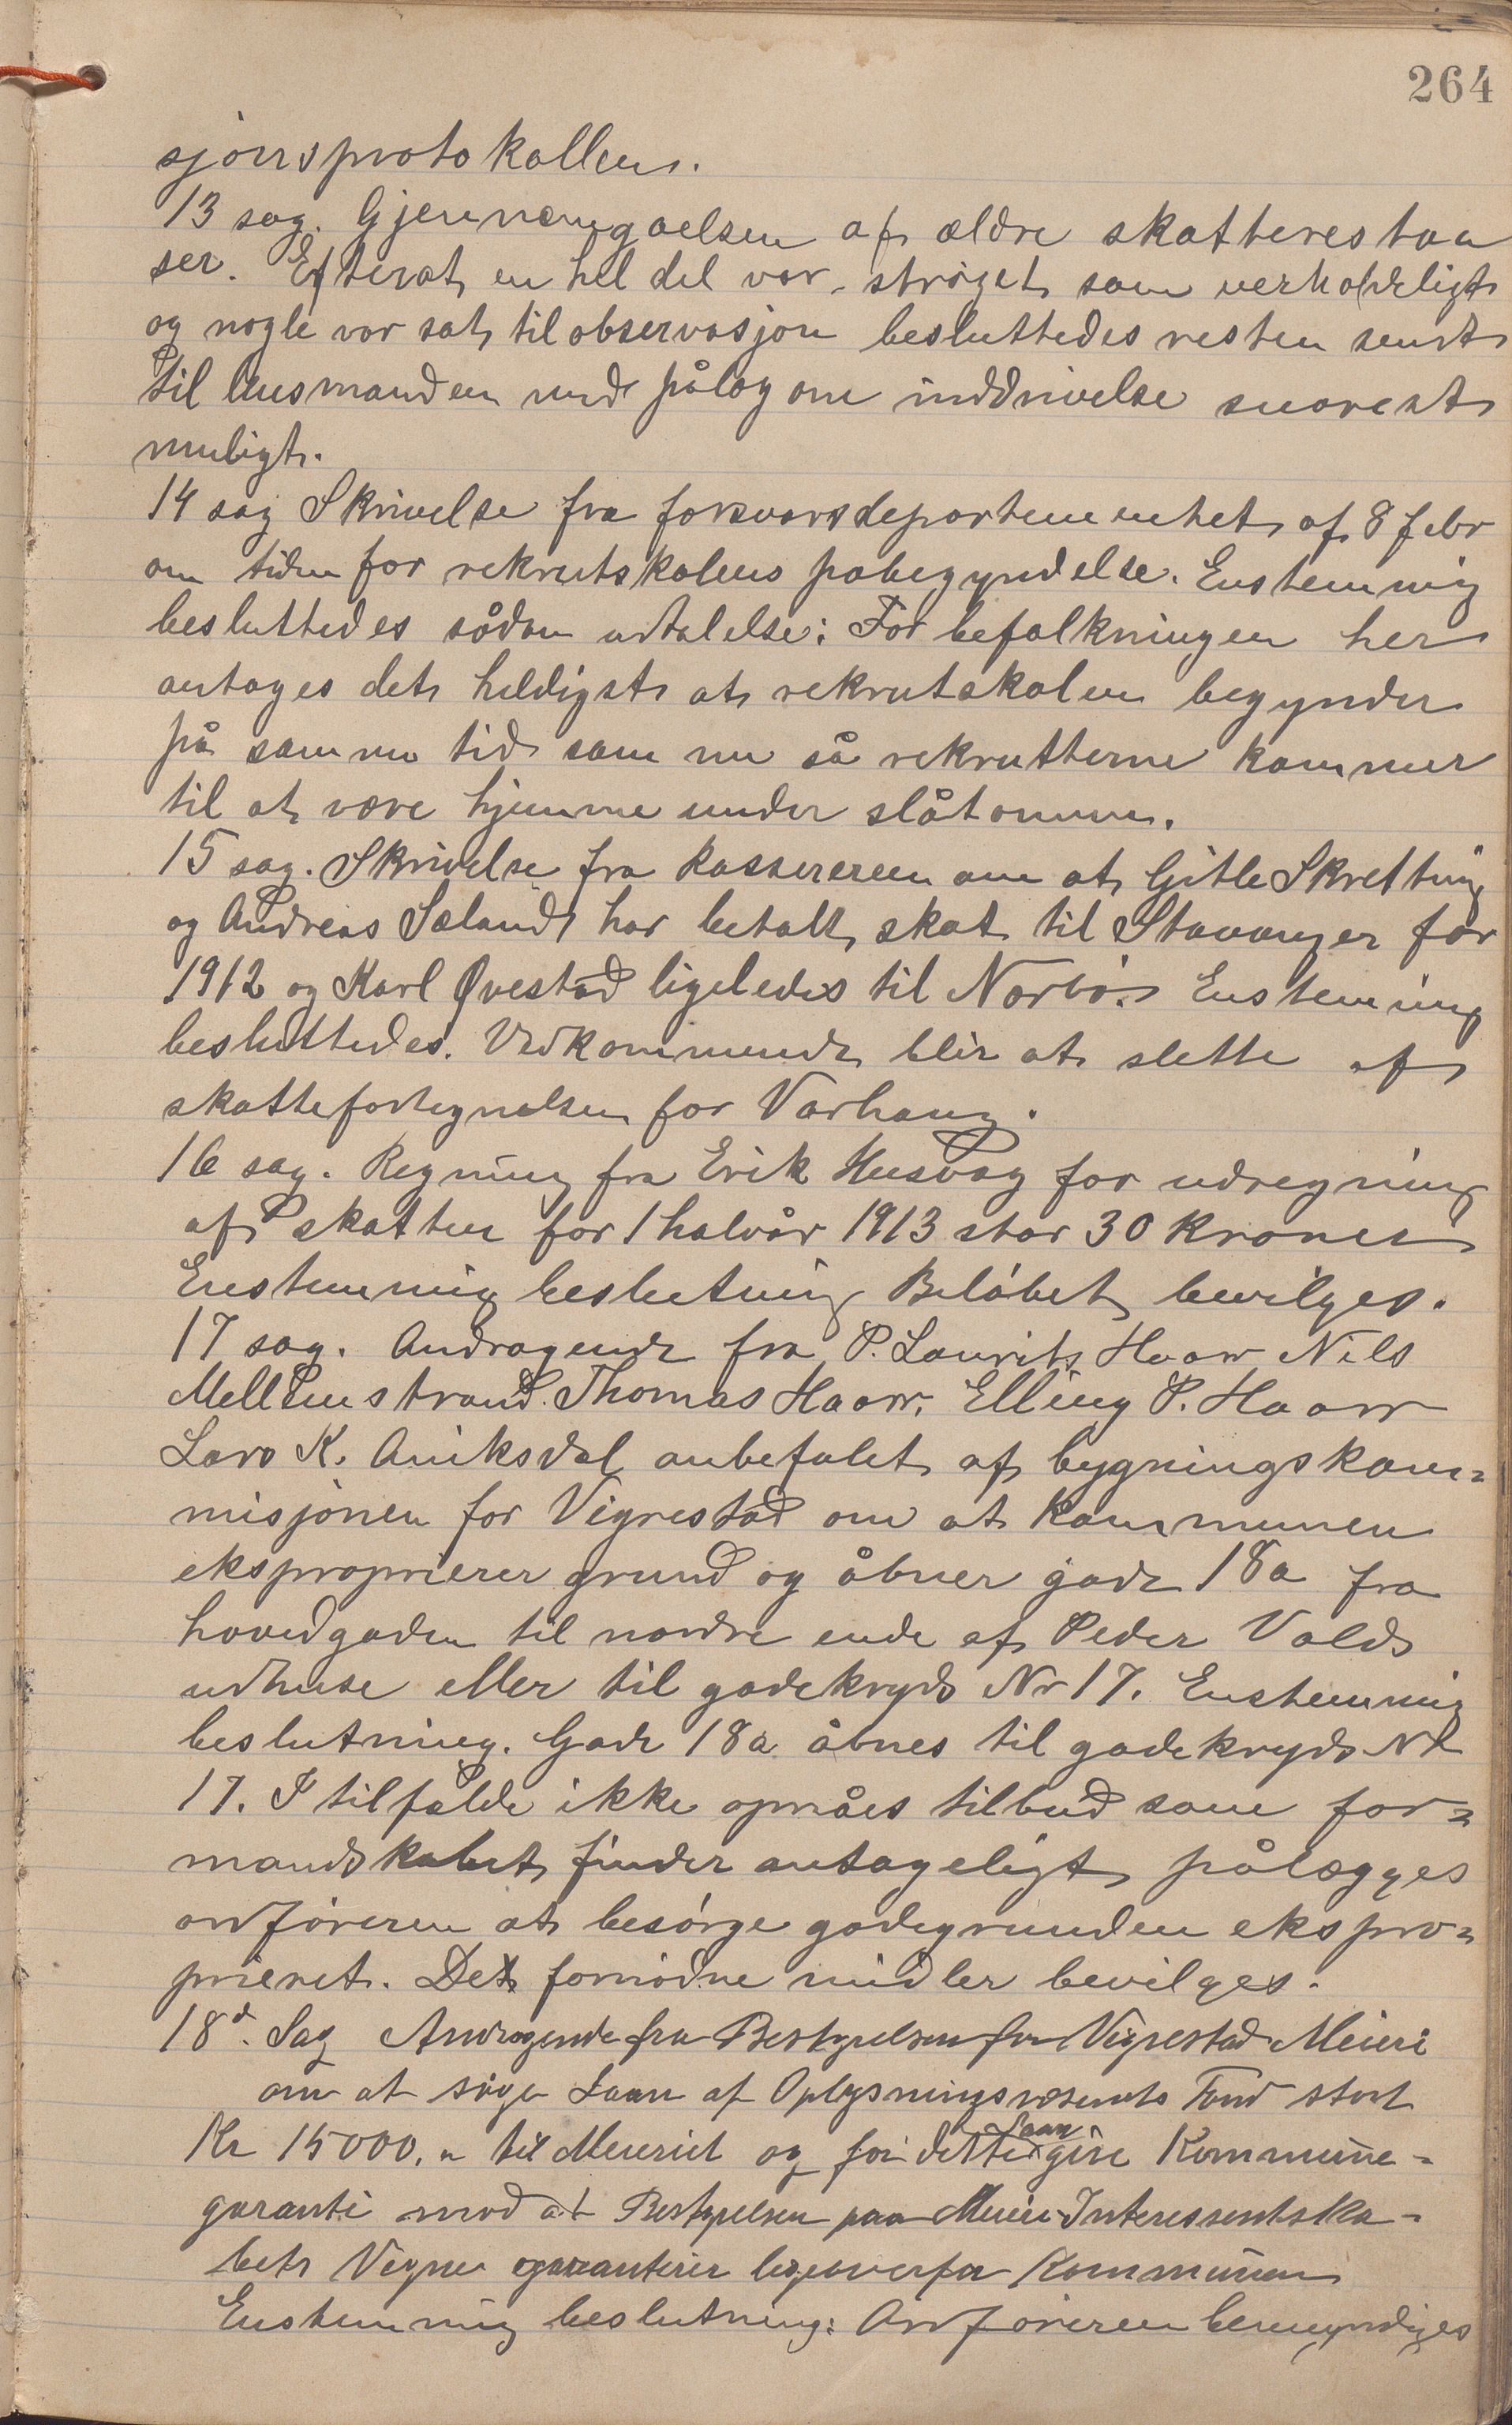 264
sjonsprotokollen.
13 sag. Gjennemgaelsen af ældre skatterestan
ser. Efterat en hel del var strøget som uerholdeligt
og nogle var sat til observasjon besluttedes resten sendt
til lensmanden med pålag om inddrivelse snarest
muligt.
14 sag Skrivelse fra forsvarsdepartementet af 8 febr
om tiden for rekrutskolens påbegyndelse. Enstemmig
besluttedes sådan udtalelse: For befolkningen her
antages det heldigst at rekrutskolen begynder
på samme tid som nu så rekrutterne kommer
til at være hjemme under slåtonnen.
15 sag. Skrivelse fra kassereren om at Gitle Skretting
og Andreas Sæland har betalt skat til Stavanger for
1912 og Karl Qvestad ligeledes til Nærbø. Enstemmig
besluttedes. Vedkommende blir at slette af
skattefortegnelsen for Varhaug.
16 sag. Regning fra Erik Husvog for udregning
af skatten for 1 halvår 1913 stor 30 kroner
Enstemmig beslutning Beløbet bevilges.
17 sag. Andragende fra P. Laurits Haar Nils
Mellemstrand. Thomas Haar. Elling P. Haar
Lars K. Aniksdal anbefalet af bygningskom=
misjonen for Vigrestad om at kommunen
eksproprierer grund og åbner gade 18a fra
hovedgaden til nordre ende af Peder Valds
udhuse eller til gadekryds Nr 17. Enstemmig
beslutning. Gade 18a åbnes til gadekryds Nr
17. I tilfælde ikke opnåes tilbud som for=
mandskabet finder antageligt pålægges
ordføreren at besørge gadegrunden ekspro=
prieret. Det fornødne midler bevilges.
18d. Sag Andragende fra Bestyrelsen for Vigrestad Meieri
om at søge Laan af Oplysningsvæsenets Fond stort
Kr 15000.- til Meieriet og for dette Laan give Kommune-
garanti mod at Bestyrelsen paa Meieri-Interessentska-
bets Vegne garanterer ligeoverfor Kommunen
Enstemmig beslutning: Ordføreren bemyndiges